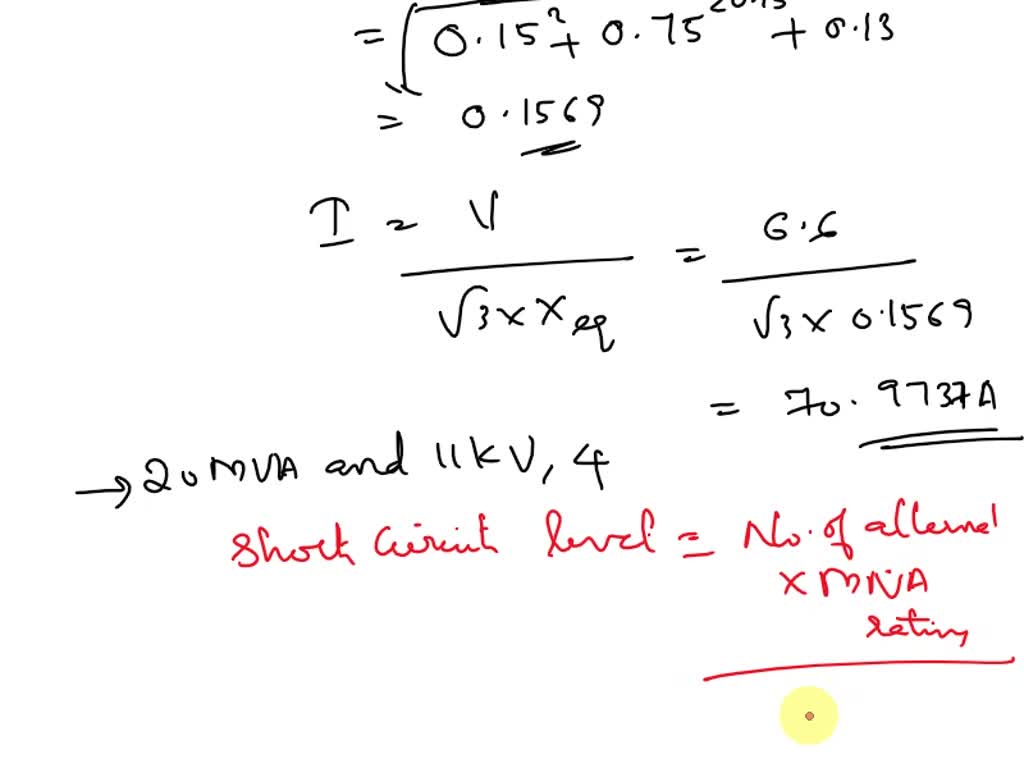 = √0.15² + 0.75 + 0.13
= 0.1569
I = V / √3 × X eq = 6.6 / √3 × 0.1569
= 70.9737A
→ 20 MVA and 11 kV, 4
Short Circuit level = No. of
× MVA
rating